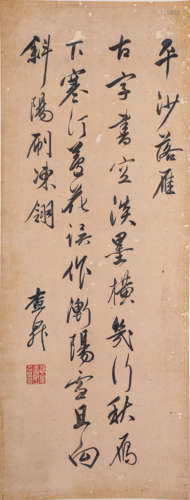 平沙落雁
古字書空淡墨橫幾行秋雁
下寒汀蘆花誤作衡陽雪且向
斜陽刷凍翎
查昇